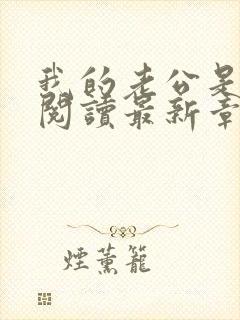 我的老公是
閱讀最新章
煙薰籠